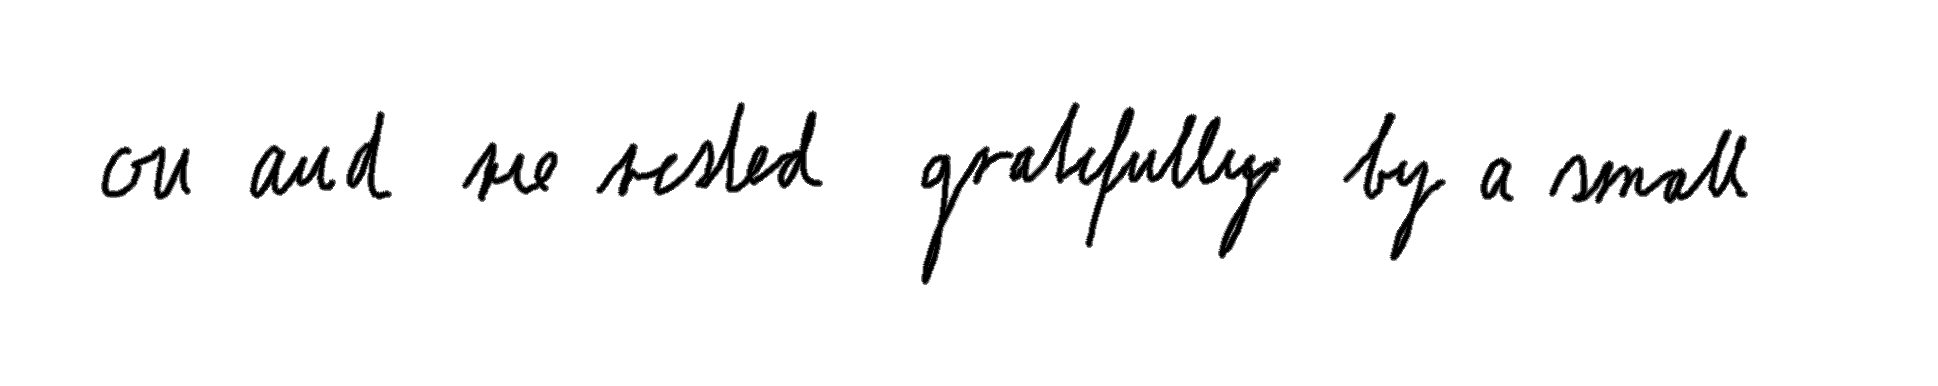 on and we rested gratefully by a small